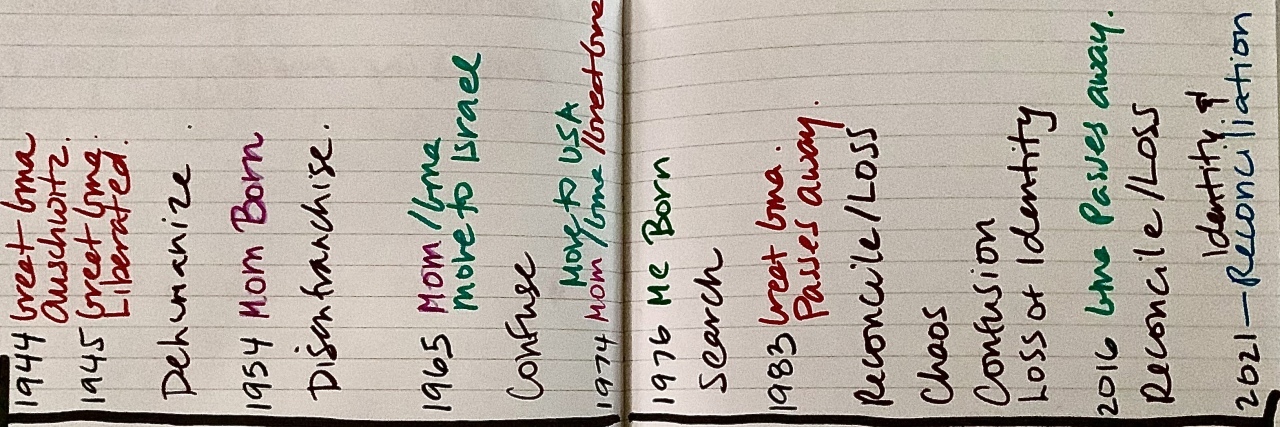 1944 Great Gma
Auschwitz
1945 Great Gma.
Liberated.
Dehumanize
1954 Mom Born
Disenfranchise.
1965 Mom/Gma
move to Israel
Confuse
Move to USA
1974 Mom/Gma/Great Gma
1976 Me Born
Search
1983 Great Gma.
Passes away.
Reconcile/Loss
Chaos
Confusion
Loss of Identity
2016 Gma Passes away.
Reconcile/Loss
Identity &
2021-Reconciliation